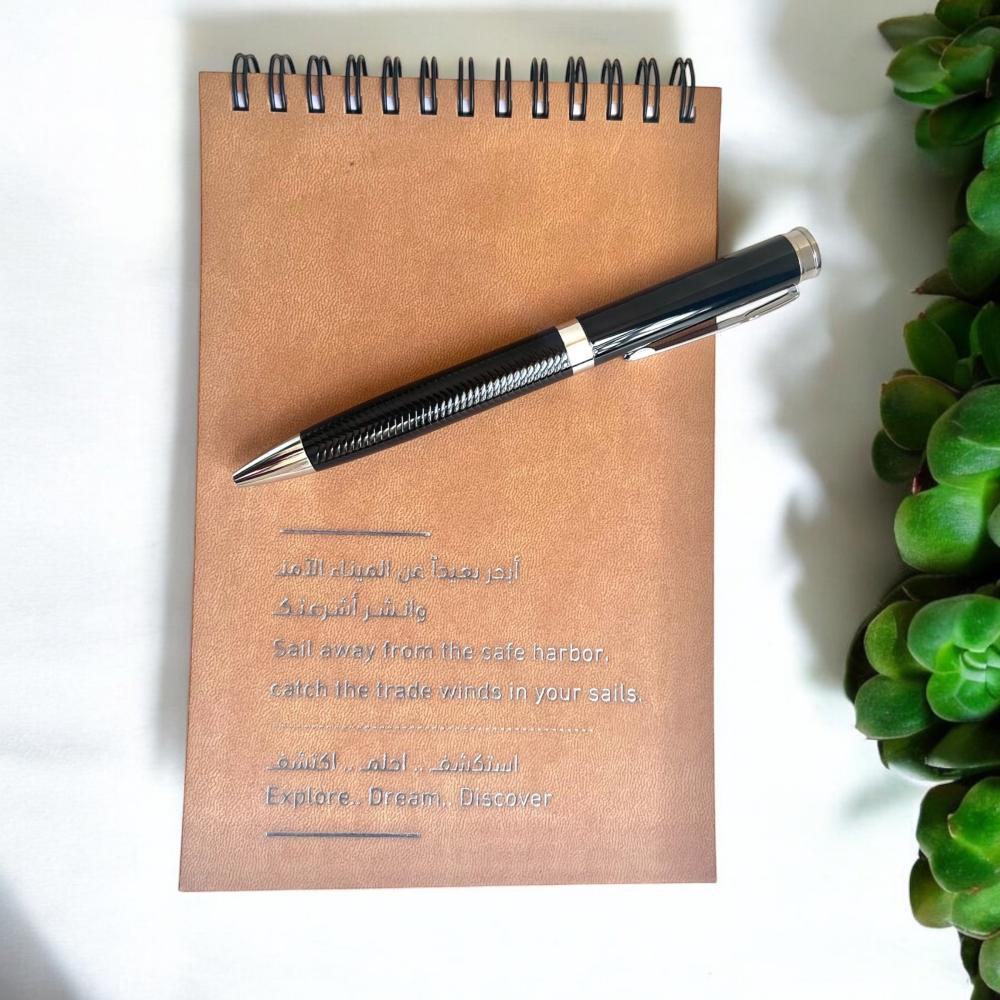 أبحر بعيداً عن الميناء الآمن
وانشر أشرعتك
Sail away from the safe harbor.
catch the trade winds in your sails.
استكشف .. احلم .. اكتشف
Explore.. Dream.. Discover